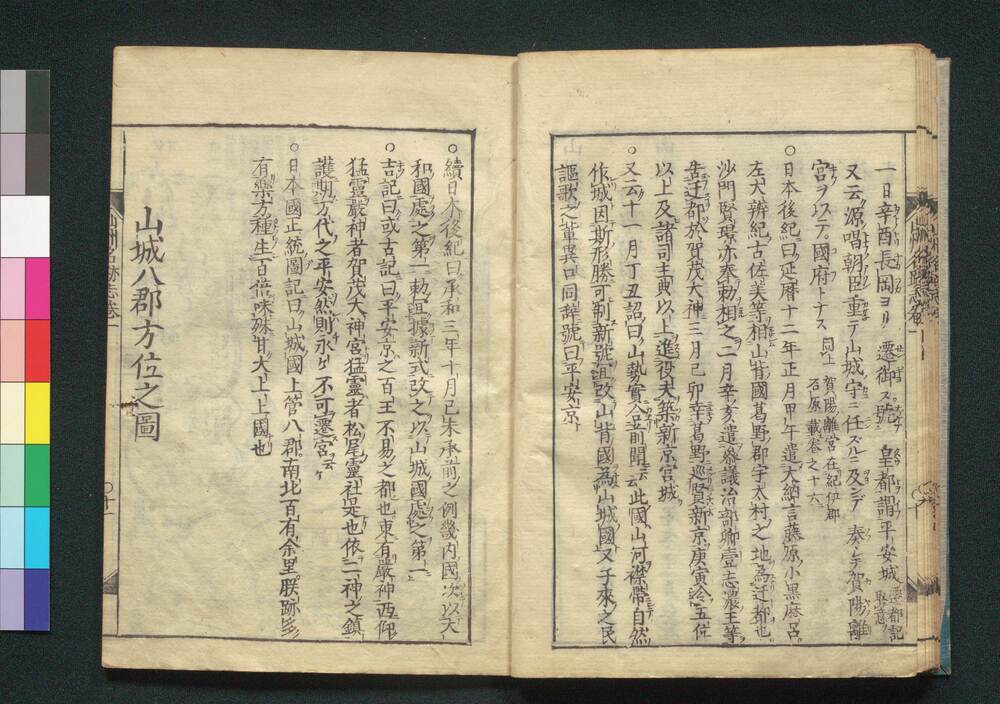 一日辛酉長岡ヨリ遷御ス號皇都謂平安城遷都記取意
又云源唱朝臣重テ山城守ニ任スルニ及ンデ奏シテ賀陽離
宮ヲ以テ國府トナス同上賀陽離宮在紀伊郡石原載卷之十六
○日本後紀曰延曆十二年正月甲午遣大納言藤原小黑麻呂
左大辨紀古佐美等相山背國葛野郡宇太村之地為迁都也
沙門賢璟亦奉勅相之二月辛亥遣參議治部卿壹志濃王等
告迁都於賀茂大神三月己卯幸葛野巡賢新京庚寅令五位
以上及諸司主典以上進役夫築新京宮城
○又云十一月丁丑詔曰山勢實合前聞云云此國山河襟帶自然
作城因斯形勝可制新號宜改山背國為山城國又子來之民
謳歌之輩異口同辭號曰平安京
○續日本後紀曰承和三年十月己未承前之例畿內國次以大
和國處之第一勅宜據新式改之以山城國處之第一
○吉記曰或古記曰平安京之百王不易之都也東有嚴神西仰
猛靈嚴神者賀茂大神宮猛靈者松尾靈社是也依二神之鎮
護期万代之平安然則永ク不可遷宮云々
○日本國正統圖記曰山城國上管八郡南北百有余里朕跡多
有樂万種生百倍味殊甘大上上國也
山城八郡方位之圖
山州名跡志卷一
○十一